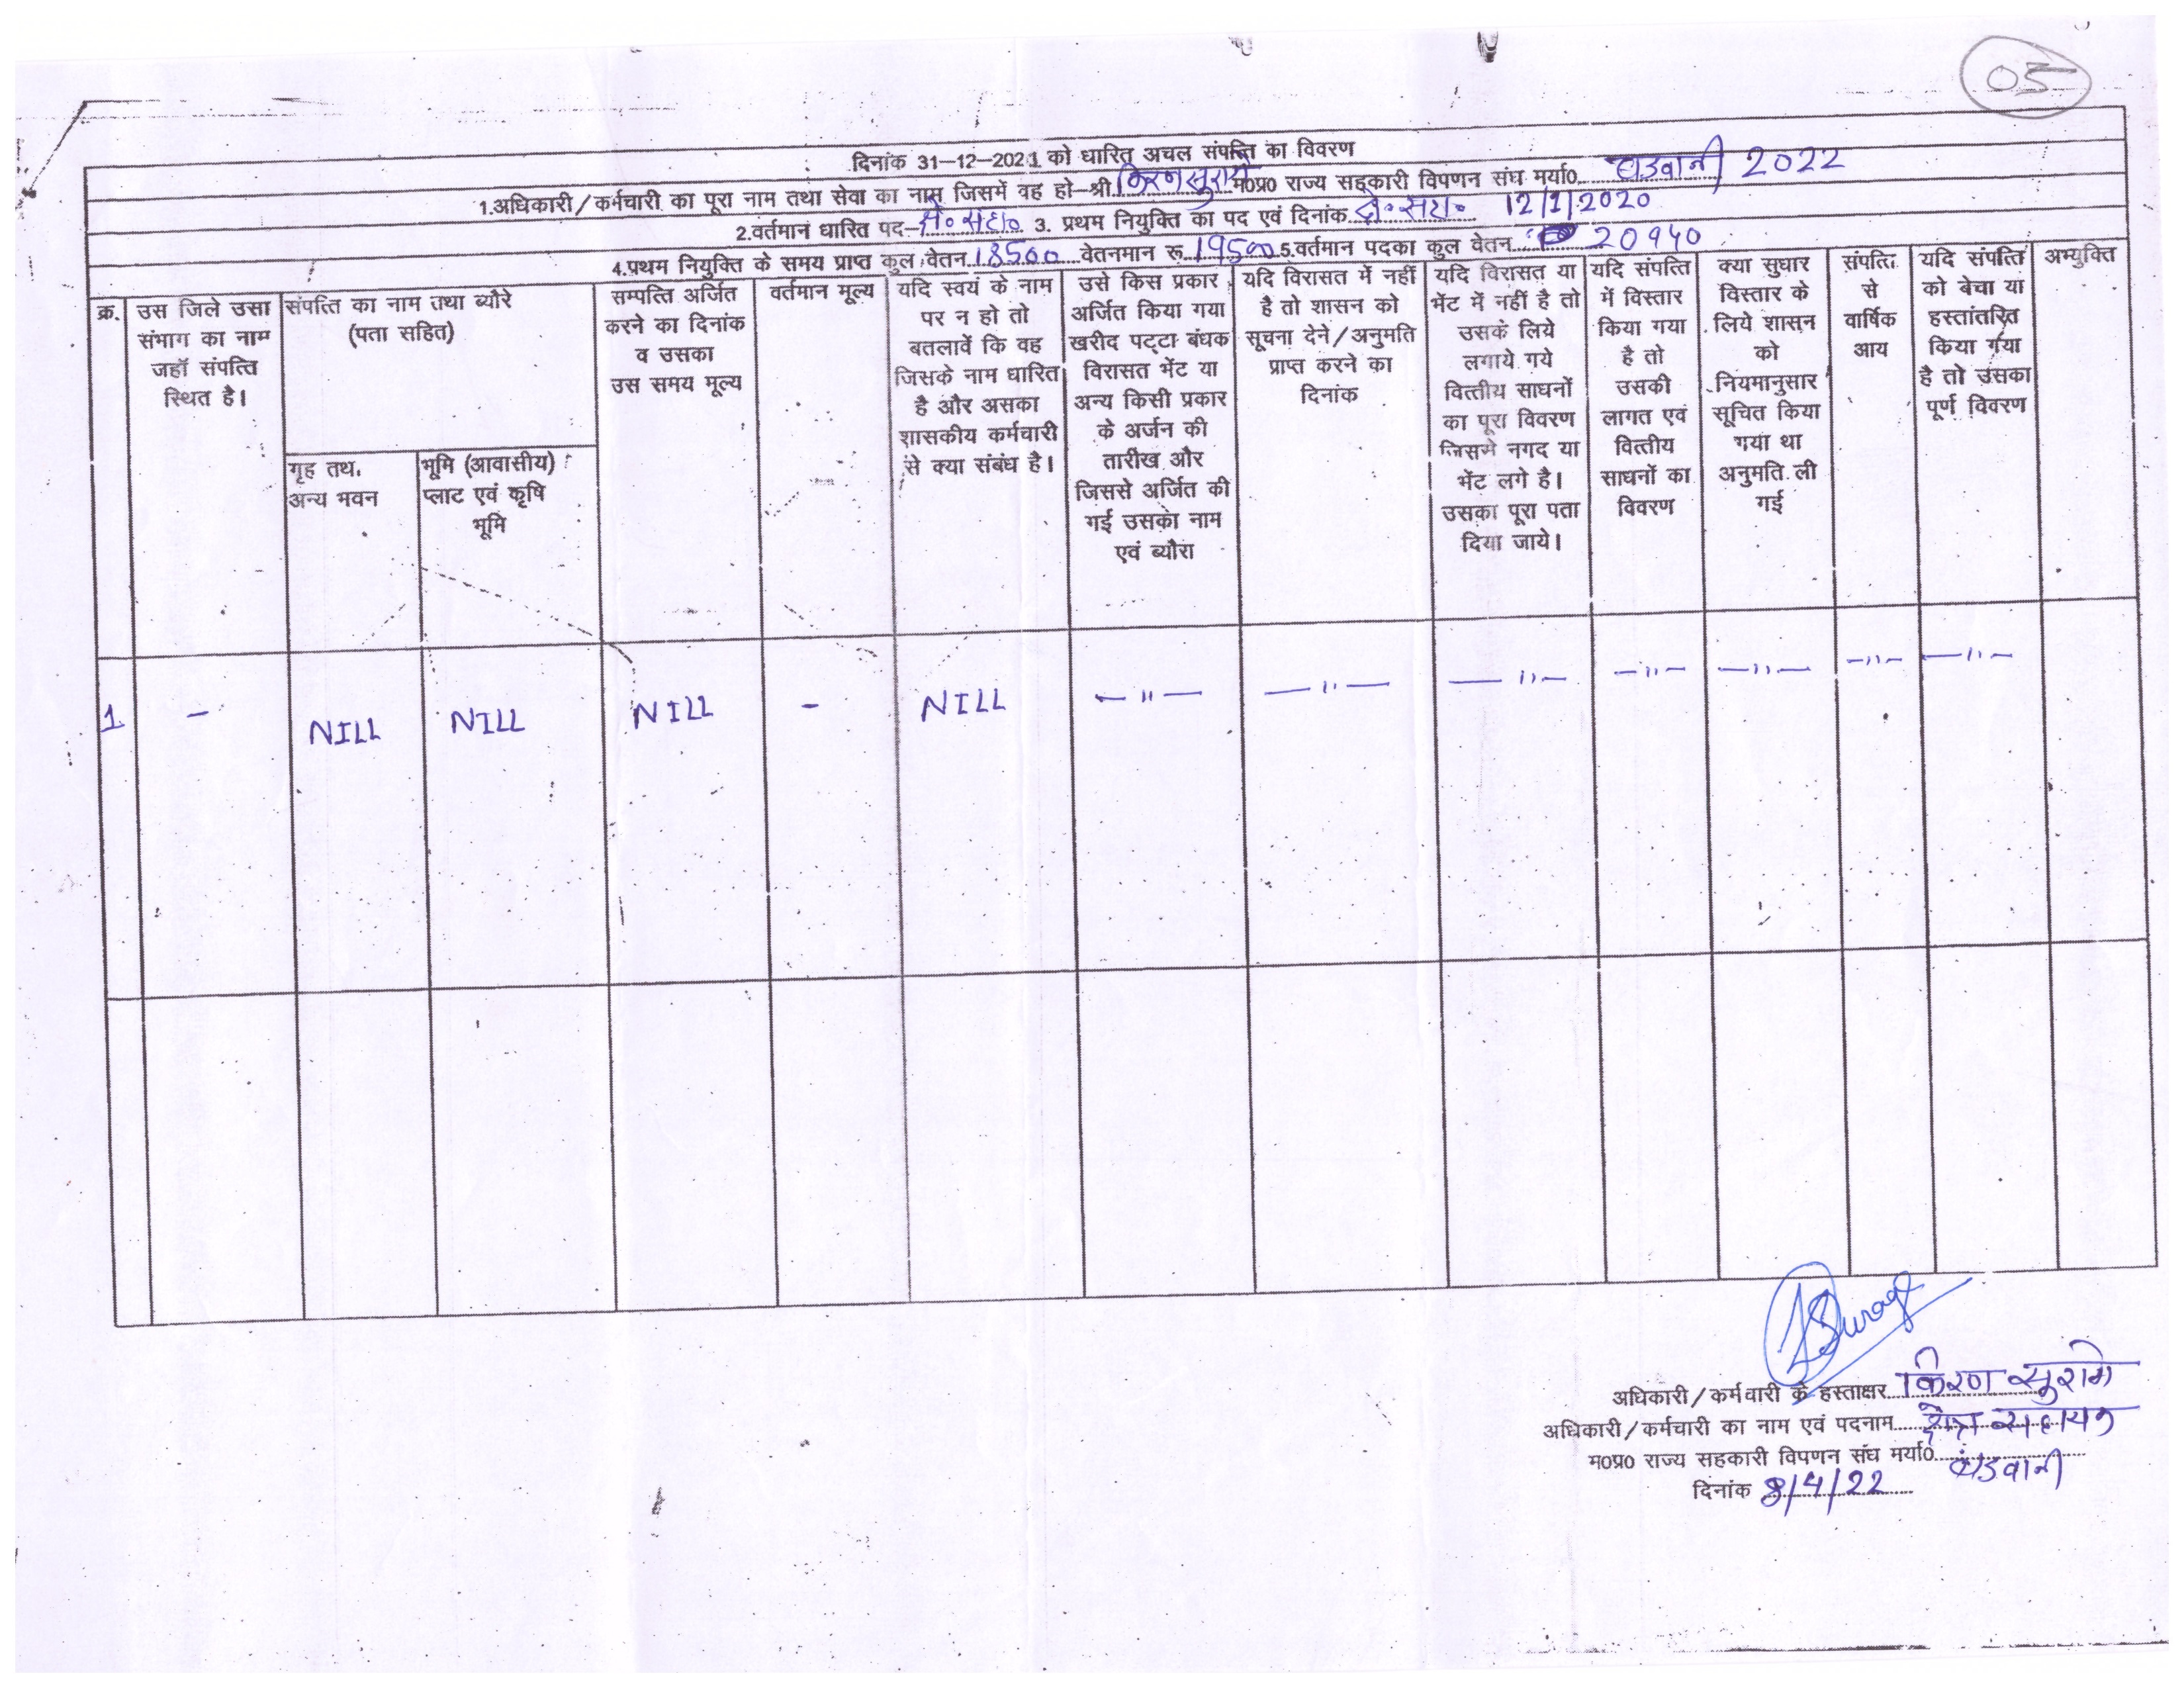 05
दिनांक 31-12-2021 को धारित अचल संपत्ति का विवरण
1.अधिकारी/कर्मचारी का पूरा नाम तथा सेवा का नाम जिसमें वह हो-श्री किरण सुरागे म0प्र0 राज्य सहकारी विपणन संघ मर्या0 बडवानी 2022
2.वर्तमान धारित पद- क्षे॰ सहा॰ 3. प्रथम नियुक्ति का पद एवं दिनांक क्षे॰ सहा॰ 12/1/2020
4.प्रथम नियुक्ति के समय प्राप्त कुल वेतन 18500 वेतनमान रू 19500 5.वर्तमान पदका कुल वेतन 20940
क्र.
उस जिले उसा
संभाग का नाम
जहॉ संपत्ति
स्थित है।
संपत्ति का नाम तथा ब्यौरे
(पता सहित)
गृह तथ.
अन्य भवन
भूमि (आवासीय)
प्लाट एवं कृषि
भूमि
सम्पत्ति अर्जित
करने का दिनांक
व उसका
उस समय मूल्य
वर्तमान मूल्य
यदि स्वयं के नाम
पर न हो तो
बतलावें कि वह
जिसके नाम धारित
है और असका
शासकीय कर्मचारी
से क्या संबंध है।
उसे किस प्रकार
अर्जित किया गया
खरीद पट्टा बंधक
विरासत भेंट या
अन्य किसी प्रकार
के अर्जन की
तारीख और
जिससे अर्जित की
गई उसका नाम
एवं ब्यौरा
यदि विरासत में नहीं
है तो शासन को
सूचना देने/अनुमति
प्राप्त करने का
दिनांक
यदि विरासत या
भेंट में नहीं है तो
उसके लिये
लगाये गये
वित्तीय साधनों
का पूरा विवरण
जिसमे नगद या
भेंट लगे है।
उसका पूरा पता
दिया जाये।
यदि संपत्ति
में विस्तार
किया गया
है तो
उसकी
लागत एवं
वित्तीय
साधनों का
विवरण
क्या सुधार
विस्तार के
लिये शासन
को
नियमानुसार
सूचित किया
गया था
अनुमति ली
गई
संपत्ति
से
वार्षिक
आय
यदि संपत्ति
को बेचा या
हस्तांतरित
किया गया
है तो उसका
पूर्ण विवरण
अभ्युक्ति
1 - NILL NILL NILL - NILL —"— —"— —"— —"— —"— —"— —"—
अधिकारी/कर्मचारी के हस्ताक्षर किरण सुरागे
अधिकारी/कर्मचारी का नाम एवं पदनाम क्षेत्र सहायक
म0प्र0 राज्य सहकारी विपणन संघ मर्या0 बडवानी
दिनांक 8/4/22